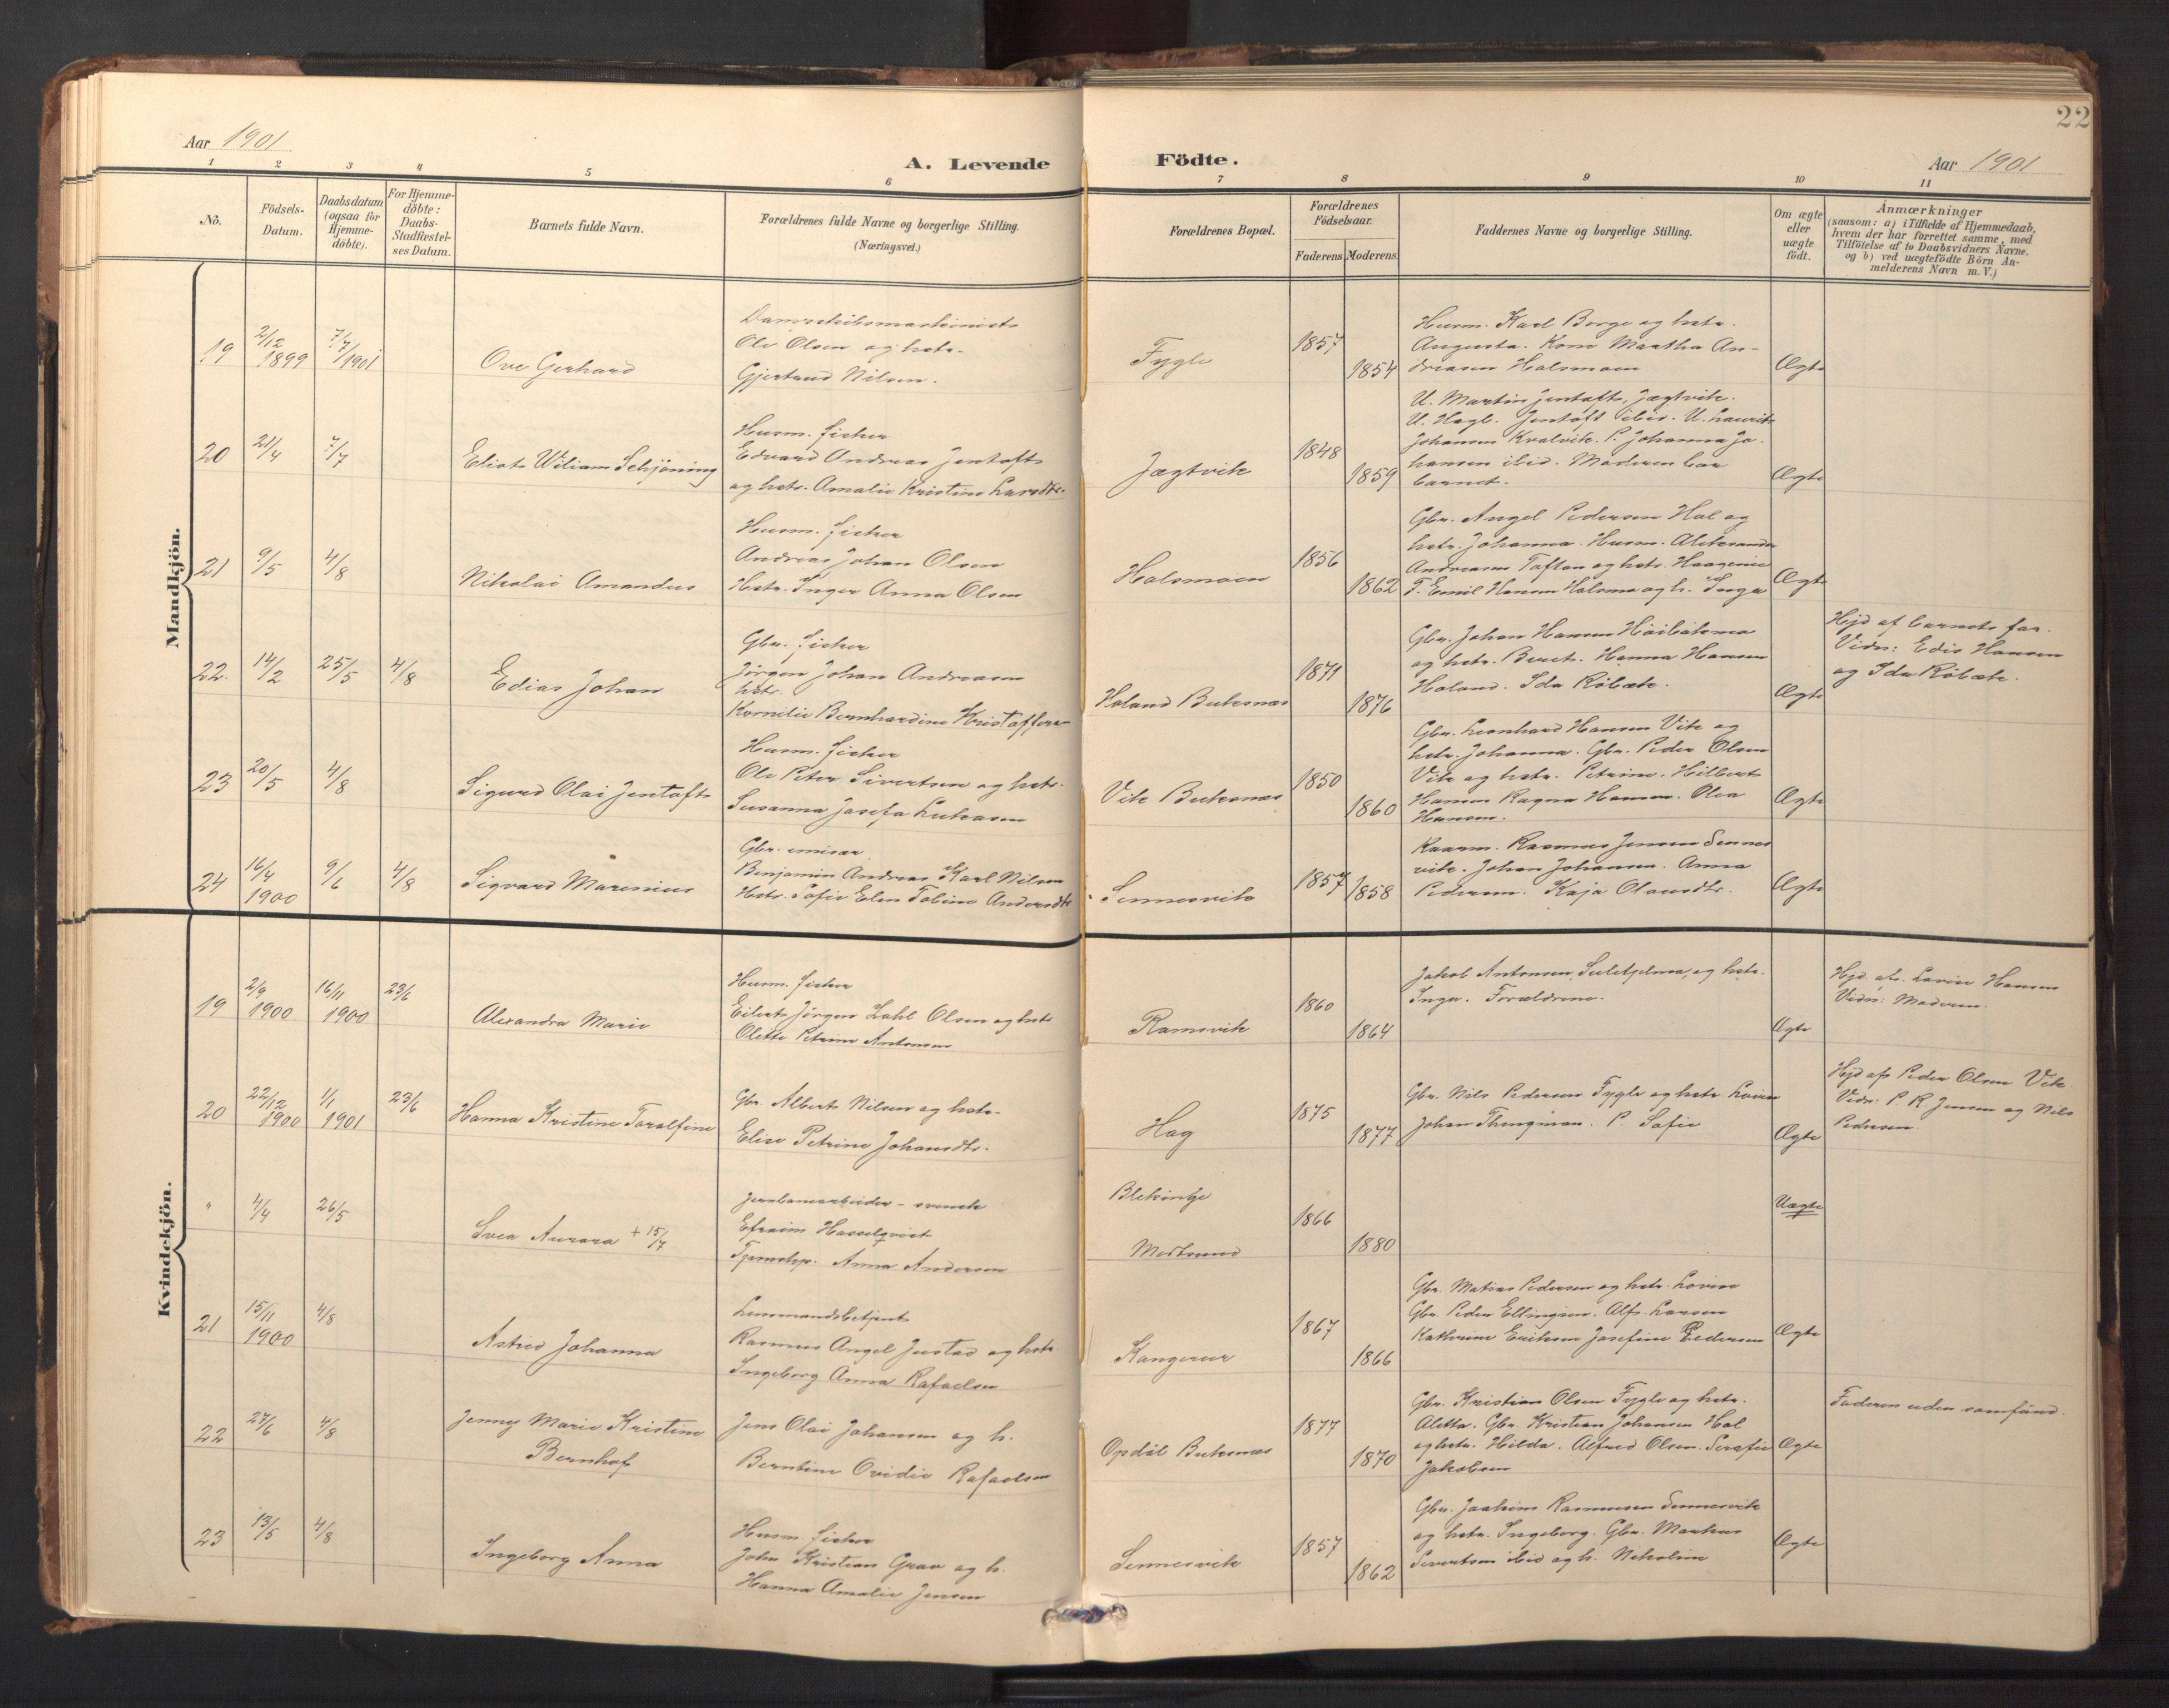 22
Aar 1901
A. Levende Födte.
Aar 1901
1 2 3 4 5 6 7 8 9 10 11
Nô.
Födsels-Datum.
Daabsdatum (ogsaa for Hjemme-döbte).
For Hjemme-döbte: Daabs-Stadfæstel-ses Datum.
Barnets fulde Navn.
Forældrenes fulde Navne og borgerlige Stilling. (Næringsvei.)
Forældrenes Bopæl.
Forældrenes Födselsaar.
Faderens Moderens.
Faddernes Navne og borgerlige Stilling.
Om ægte eller uægte födt.
Anmærkninger
(saasom: a) i Tilfælde af Hjemmedaab,
hvem der har forrettet samme, med
Tilföielse af to Daabsvidners Navne.
og b) ved uægtefödte Börn An-
melderens Navn m. V.)
Mandkjön.
19 2/12 1899 7/7 1901
Ove Gerhard
Ole Olsen og hstr.
Gjertrud Nilsen.
Fygle
1857
1854
Husm. Karl Borge og hstr.
Augusta. Kone Martha An-
dreasen Holsmoen
Ægte
20 21/4 7/7
Eliot Wiliam Schjöning
Husm. fisker
Edvard Andreas Jentoft
og hstr. Amalie Kristine Larsdtr.
Jægtvik
1848
1859
U. Martin Jentoft, Jægtvik.
U. Hagb. Jentoft ibid. U. Laurits
Johansen Kvalvik. P. Johanna Jo-
hansen ibid. Moderen bar
barnet.
Ægte
21 9/5 4/8
Nikolai Amandus
Husm. fisker
Andreas Johan Olsen
Hstr. Inger Anna Olsen
Holsmoen
1856
1862
Gbr. Angel Pedersen Hol og
hstr. Johanna. Husm. Aleksander
Andreasen Toftan og hstr. Haagenie
T. Emil Hansen Holsmo og h. Inga
Ægte
22. 14/2 25/5 4/8
Edias Johan
Gbr. fisker
Jörgen Johan Andreasen
hstr.
Kornelie Bernhardine Kristoffers-
Holand Buksnæs
1871
1876
Gbr. Johan Hansen
og hstr. Berit. Hanna Hansen
Holand. Ida Röbæk.
Ægte
Hjd af barnets far.
Vidn: Edis Hansen
og Ida Röbæk.
23 20/5 4/8
Sigurd Olai Jentoft
Husm. fisker
Ole Peter Sivertsen og hstr.
Susanna Josefa Lukasen
Vik Buksnæs
1850
1860
Gbr. Leonhard Hansen Vik og
hstr. Johanna. Gbr. Peder Olsen
Vik og hstr. Petrine. Hilbert
Hansen Ragna Hansen. Olea
Hansen.
Ægte
24 16/4 1900 9/6 4/8
Sigvard Marenius
Gbr. emisær
Benjamin Andreas Karl Nilsen
Hstr. Sofie Elen Tobine Andersdtr
Sennesvik
1857
1858
Rasmus Jensen Sennes
vik. Johan Johansen. Anna
Pedersen. Kaja Olausdtr.
Ægte
Kvindekjön.
19 2/9 1900 16/11 1900 23/6
Alexandra Marie
Husm. fisker
Eilert Jörgen Zahl Olsen og hstr
Olette Petrine Antonsen
Ramsvik
1860
1864
Jakob Antonsen, Sulitjelma, og hstr.
Inga. Forældrene.
Ægte
Hjd af. Lovise Hansen
Vidn: Moderen.
20 22/12 1900 1/1 1901 23/6
Hanna Kristine Toralfine
Gbr. Albert Nilsen og hstr.
Elise Petrine Johansdtr.
Hag
1875
1877
Gbr. Nils Pedersen Fygle og hstr Lovise
Johan Thengman. P. Sofie
Ægte
Hjd af Peder Olsen Vik
Vidn: P. R. Jensen og Nils
Pedersen.
" 4/4 26/5
Svea Aurora + 15/7
Jernbanearbeider - svensk
Efraim Hasselqvist
Tjenestep. Anna Andersen
Blekinge
Mortsund
1866
1880
Uægte
21 15/11 1900 4/8
Astrid Johanna
Lensmandsbetjent
Rasmus Angel Justad og hstr.
Ingeborg Anna Rafaelsen
1867
1866
Gbr. Matias Pedersen og hstr. Lovise
Gbr. Peder Ellingsen. Alf. Larsen
Kathrine Eriksen Josefine Pedersen
Ægte
22 27/6 4/8
Jenny Marie Kristine
Bernhof
Jens Olai Johansen og h.
Berntine Ovidie Rafaelsen
Opdöl Buksnæs
1877
1870
Gbr. Kristian Olsen Fygle og hstr.
Aletta. Gbr. Kristian Johansen Hol
og hstr. Hilda. Alfred Olsen. Serafie
Jakobsen
Ægte
Faderen uden samfund.
23 13/5 4/8
Ingeborg Anna
Husm. fisker
John Kristian Grav og h.
Hanna Amalie Jensen
Sennesvik
1857
1862
Gbr. Joakim Rasmusen Sennesvik
og hstr. Ingeborg. Gbr. Markus
Sivertsen ibid og h. Nikoline
Ægte